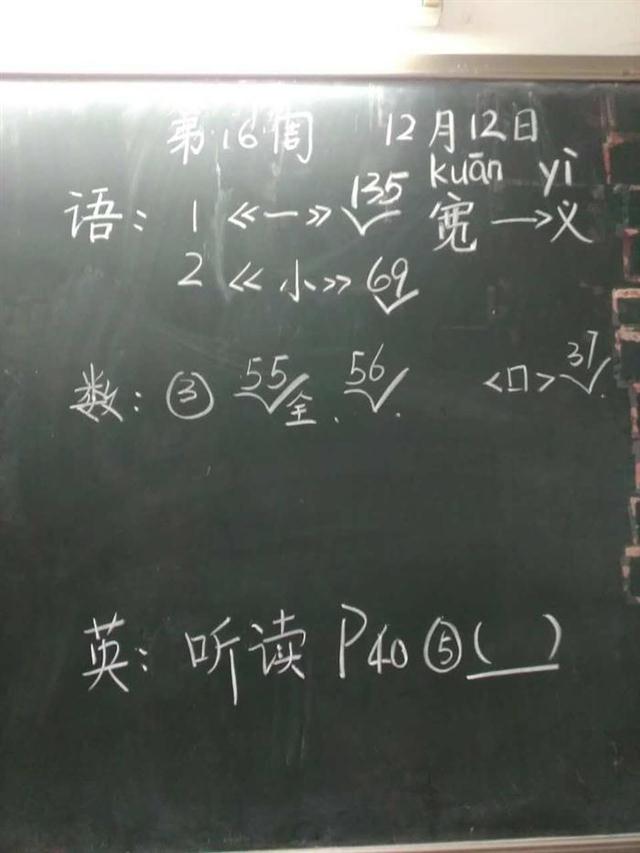 第16周 12月12日
kuān yì
语: 1 《一》 135 宽→义
2 《小》 69
数: ③ 55全、56. <口> 37.
英: 听读 P40⑤( )